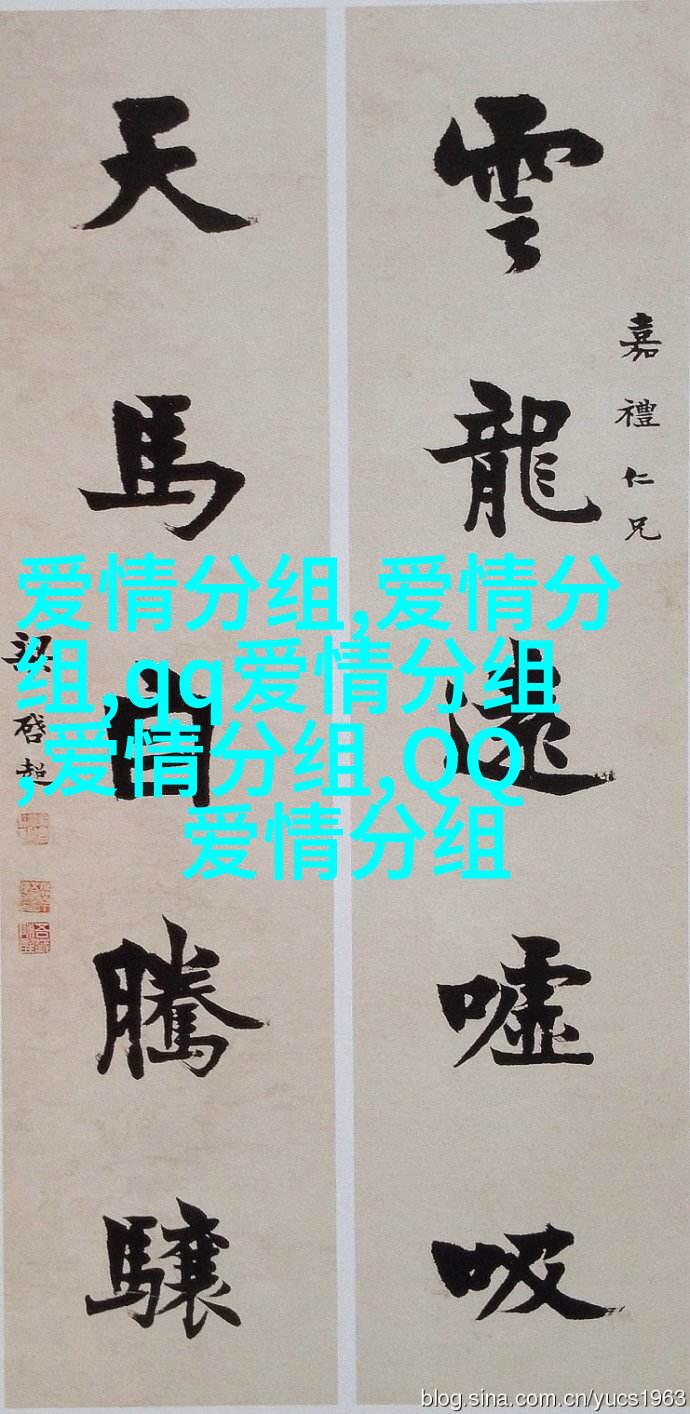 雲龍遠噓吸
嘉禮仁兄
天馬自騰驤
梁啓超
爱情分组,爱情分
组,qq爱情分组
,爱情分组,QQ
爱情分组
blog.sina.com.cn/yucs1963